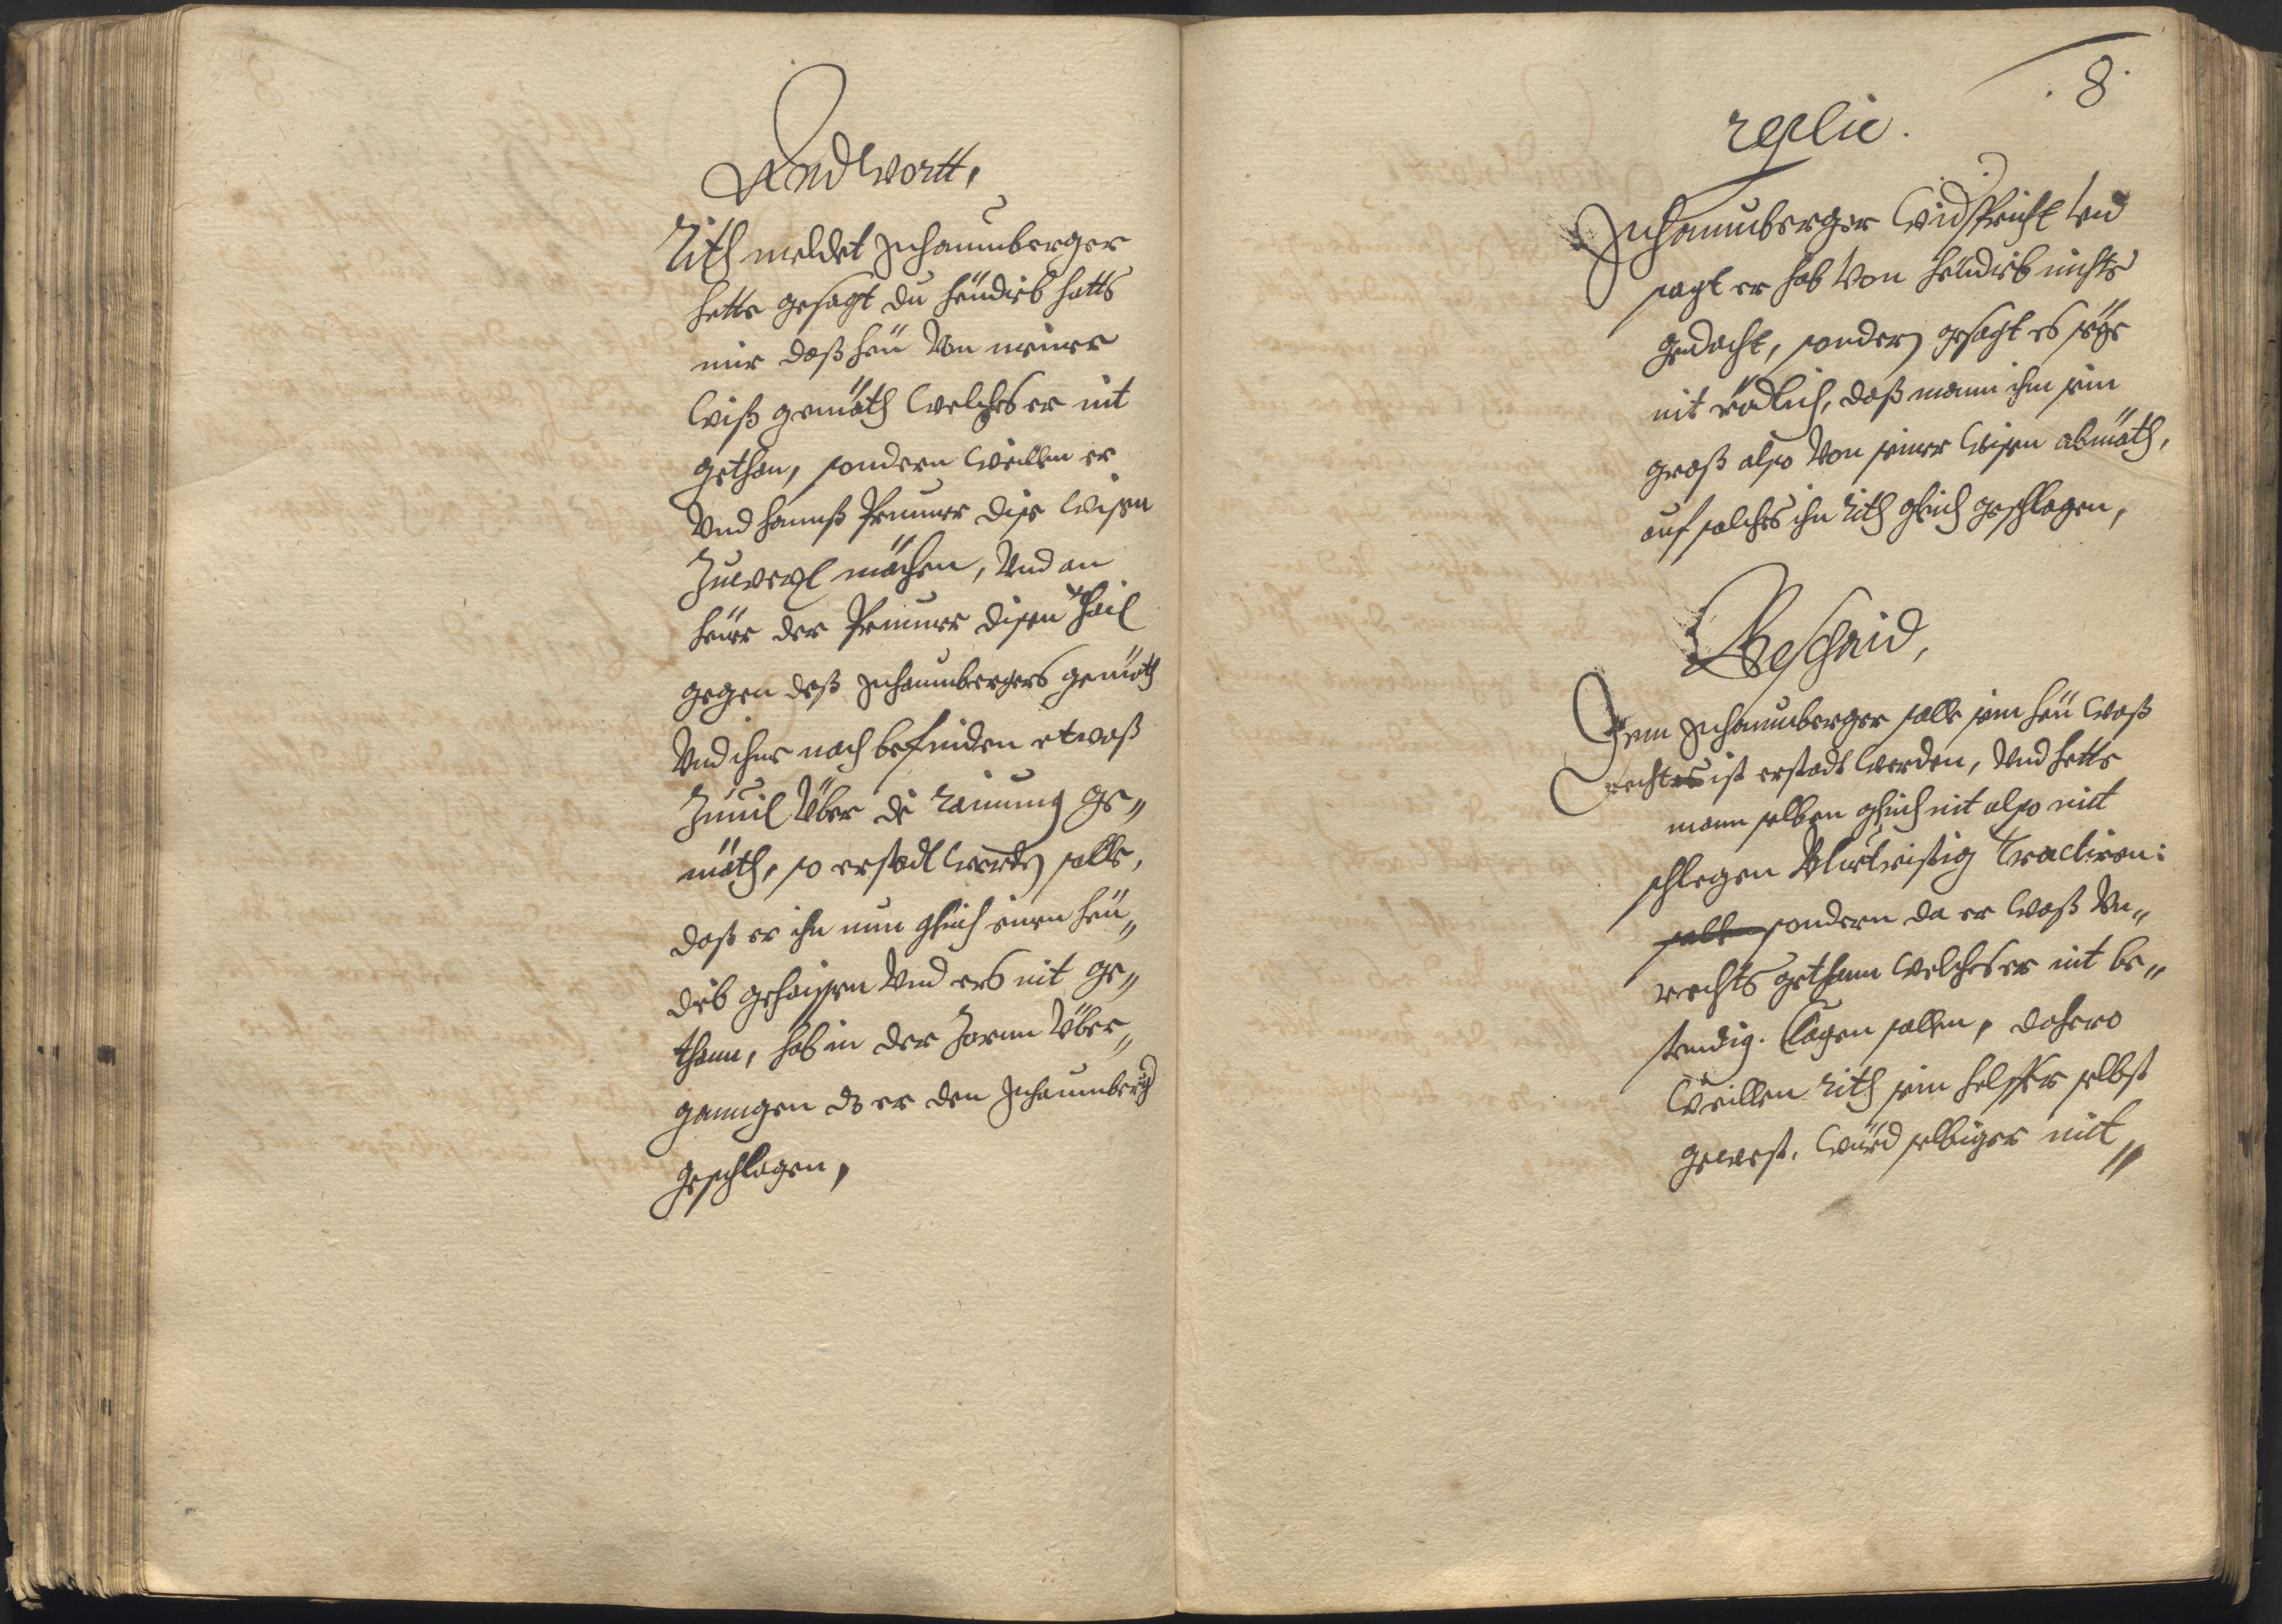 Andtwortt,
Rith meldet Schaumberger
hette gesagt du heudieb hatts
mir daß heu von meiner
wiß gemäth welches er nit
gethan, sondern weillen er
Vnd hannß Prunner dise wisen
Zuwexl mächen, Vnd an
heuer der Prunner disen thail
gegen deß Schaumbergers gemäth
Vnd ihme nach befinden etwaß
Zuuil Über die rainung ge„
mäth, so erstadt werden solle,
daß er ihn nun gleich einen heu„
dieb gehaissen Vnd ers nit ge„
thann, hab in der Zorrn Über„
ganngen dz er den Schaumberg
geschlagen,
8.
replic.
Schaumberger widspricht vnd
sagt er hab Von heudieb nichts
gedacht, sondern gesagt es seye
nit rödlich, daß mann ihm sein
graß also Von seiner wisen abmäth,
auf solches ihn Rith gleich geschlagen,
Beschaid,
Dem Schaumberger solle sein heu waß
rechtes ist erstadt werden, Vnd hette
mann selben gleich nit also mit
schlegen tractiren:
solle sondern da er waß Vn„
rechts gethann welches er nit be„
stendig. Clagen sollen, dahero
weillen Rith sein helffer selbst
gewest, würd selbiger mit„